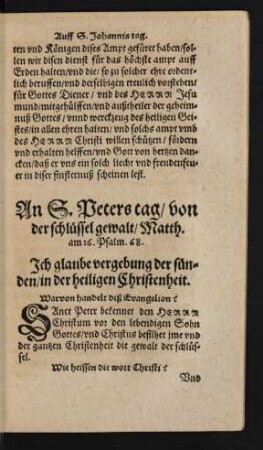 Auff S. Johannis tag.
ten vnd Königen dises Ampt gefüret haben/sol-
len wir disen dienst für das höchste ampt auff
Erden halten/vnd die/so zu solcher ehre ordent-
lich beruffen/vnd derselbigen trewlich vorstehen/
für Gottes Diener/ vnd des HERRN Jesu
mund/mitgehülffen/vnd außtheiler der geheim-
nuß Gottes/ vnnd werckzeug des heiligen Gei-
stes/in allen ehren halten/ vnd solchs ampt vmb
des HERRN Christi willen schützen/ fördern
vnd erhalten helffen/vnd Gott von hertzen dan-
cken/daß er vns ein solch liecht vnd freudenfeu-
er in diser finsternuß scheinen lest.
An S. Peters tag/ von
der schlüssel gewalt/ Matth.
am 16. Psalm. 68.
Ich glaube vergebung der sün-
den/in der heiligen Christenheit.
Warvon handelt diß Evangelion?
SAnct Peter bekennet den HERRN
Christum vor den lebendigen Sohn
Gottes/vnd Christus befilhet jme vnd
der gantzen Christenheit die gewalt der schlüs-
sel.
Wie heissen die wort Christi?
Vnd